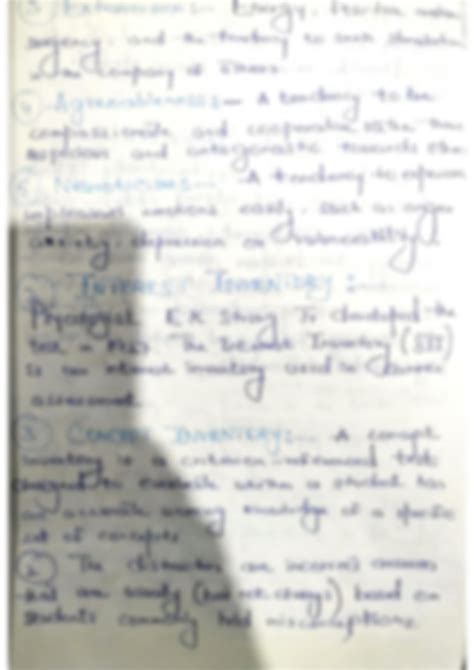 3 Extraversion:- Energy, positive
and the tendency to seek stimulation
in the company of others
4 Agreeableness:- A tendency to be
compassionate and cooperative rather than
suspicious and antagonistic towards others
5 Neuroticism:- A tendency to experience
unpleasant emotions easily, such as anger
anxiety, depression or vulnerability.
INTEREST INVENTORY:-
Psychologist E.K Strong Jr developed the
test in The Interest Inventory (SII)
is an interest inventory used in career
assessment.
3 CONCEPT INVENTORY:- A concept
inventory is a criterion-referenced test
designed to evaluate whether a student has
an accurate working knowledge of a specific
set of concepts
The distractors are incorrect answers
that are usually (but not always) based on
students commonly held misconceptions.